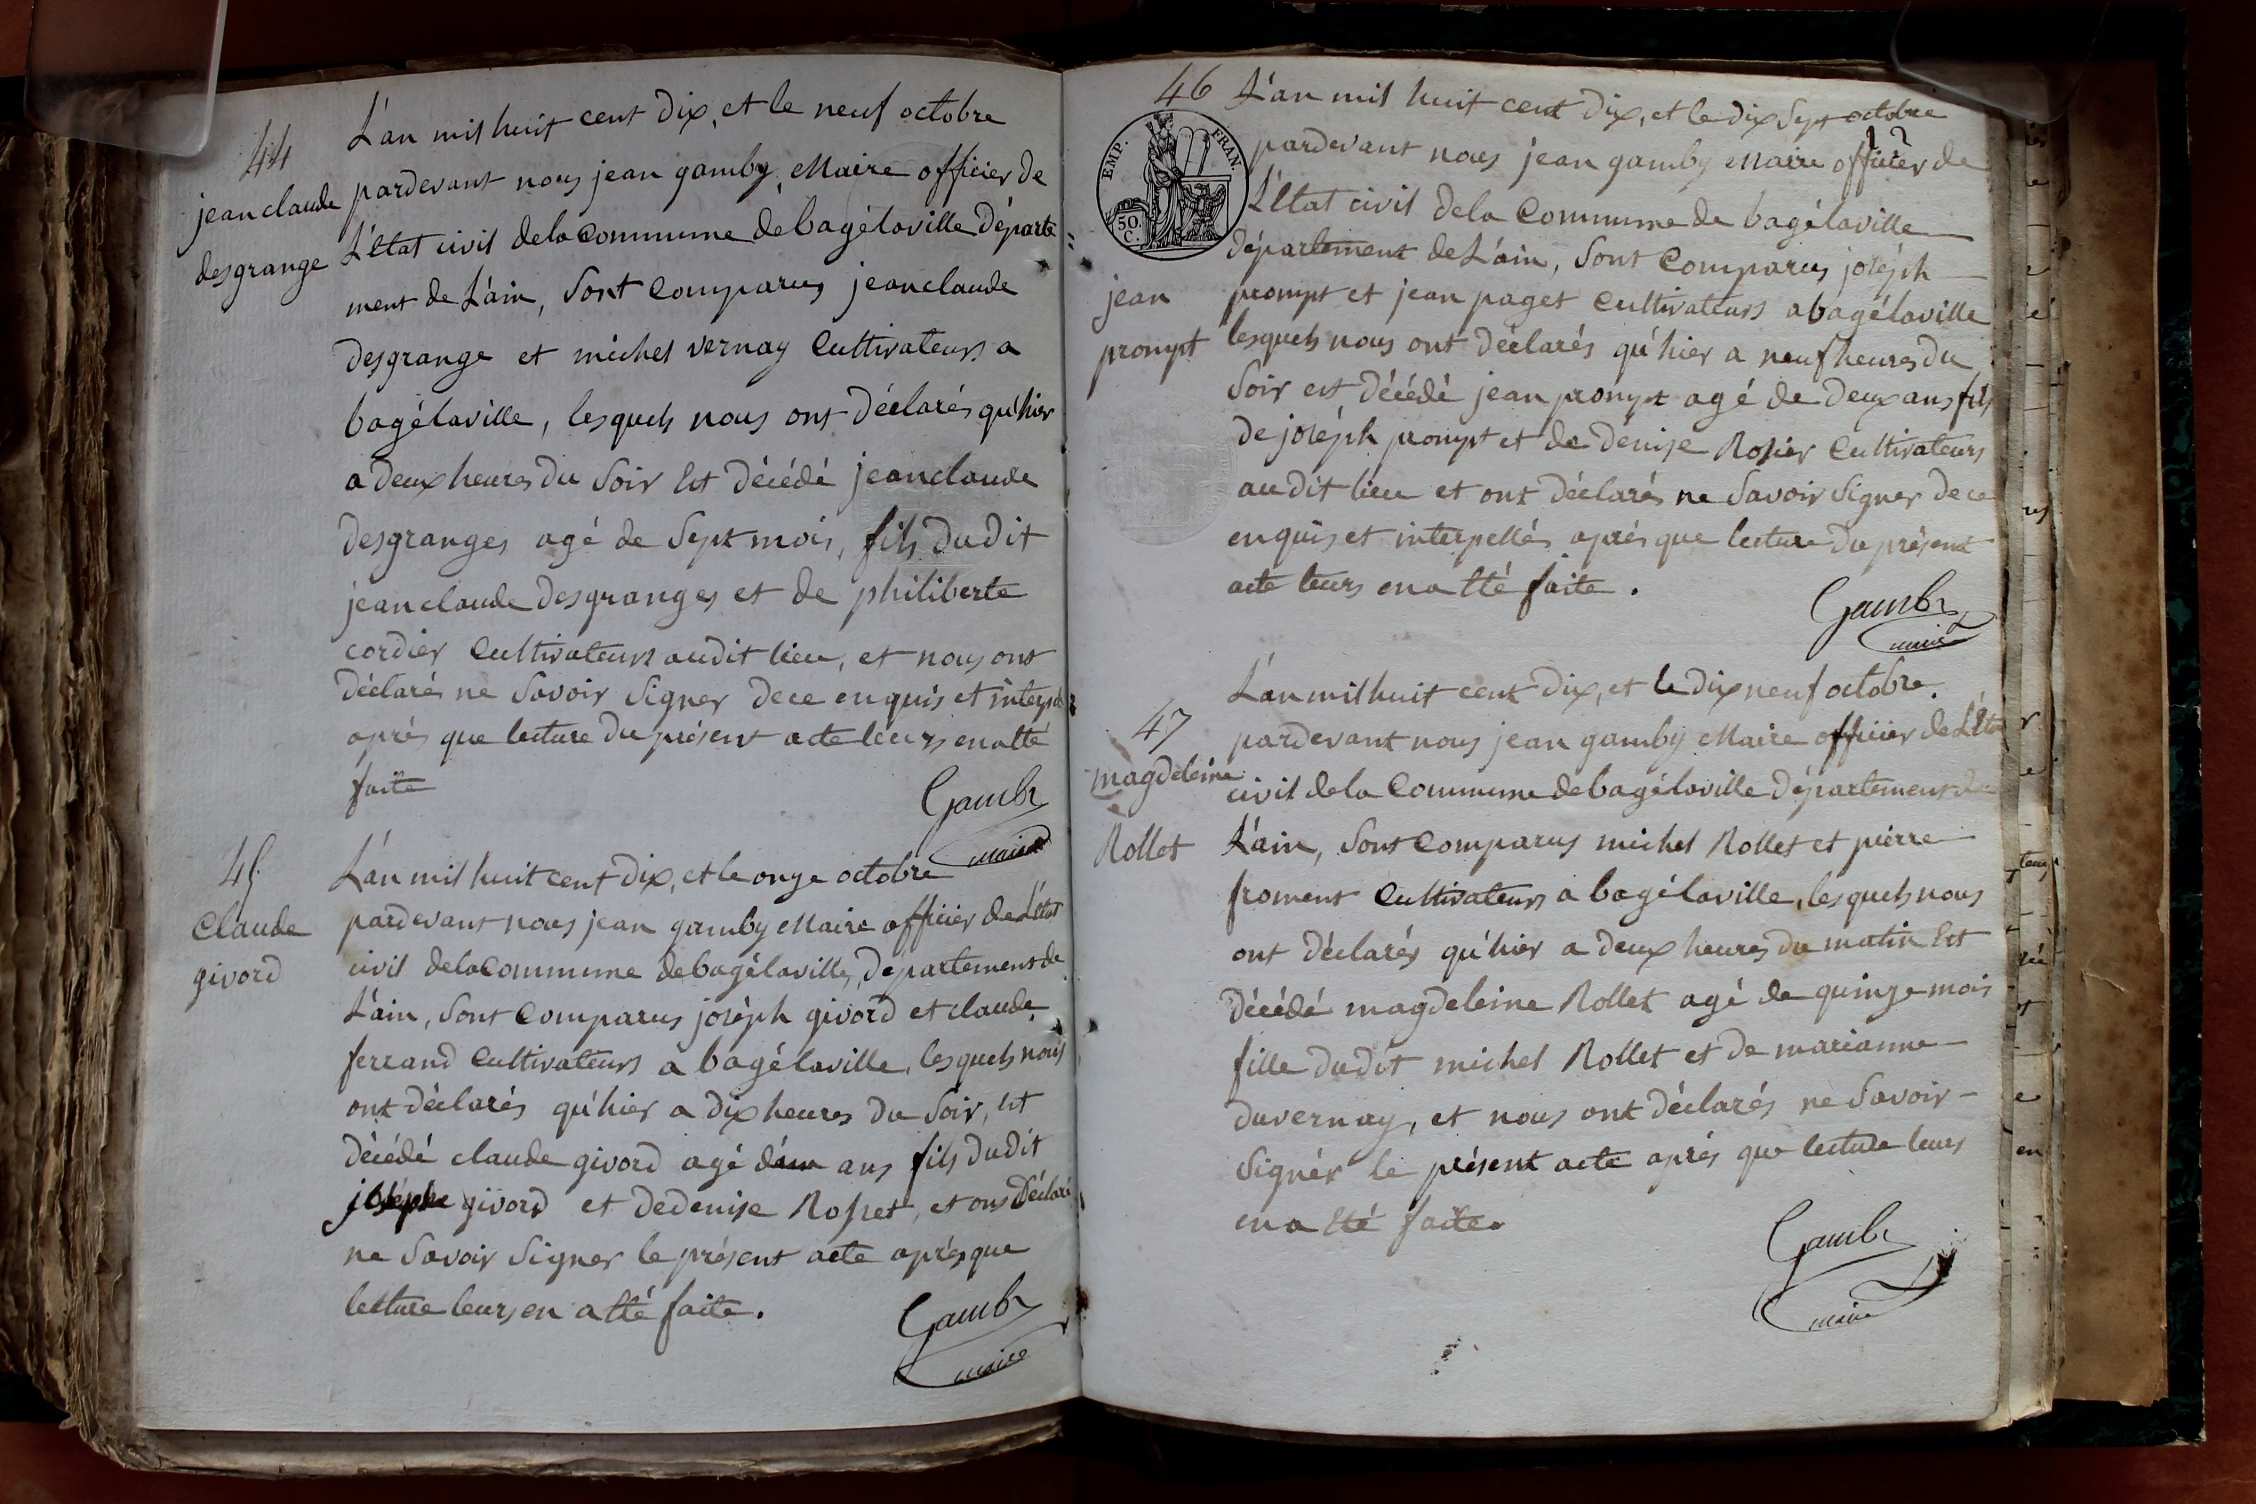 44
jean claude
desgrange
L'an mil huit cent dix, et le neuf octobre
pardevant nous jean gamby, Maire officier de
L'état civil dela Commune de bagélaville Départe
ment de L'ain, Sont Comparus jean claude
desgrange et michel vernay Cultivateurs a
bagélaville, lesquels nous ont déclarés qu'hier
a deux heures du Soir Est décédé jean claude
desgranges agé de Sept mois, fils dudit
jean claude desgranges et de philiberte
cordier Cultivateurs audit lieu, et nous ont
déclarés ne Savoir Signer de ce enquis et
après que lecture du présent acte leurs en a été
faite
Gamby
maire
45
Claude
givord
L'an mil huit cent dix, et le onze octobre
pardevant nous jean gamby Maire officier de L'état
civil dela Commune de bagélaville, département de
L'ain, Sont Comparus joséph givord et claude
ferrand Cultivateurs a bagélaville, lesquels nous
ont déclarés qu'hier a dix heures du Soir, Est
décédé claude givord agé ans fils dudit
joséph givord et de denise Rosset, et ont déclaré
ne Savoir Signer le présent acte après que
lecture leurs en a été faite.
Gamby
maire
46
EMP. FRAN.
50.
C.
jean
prompt
L'an mil huit cent dix, et le dix Sept octobre
pardevant nous jean gamby Maire officier de
L'état civil dela Commune de bagélaville
département de L'ain, Sont Comparus joséph
prompt et jean paget Cultivateurs a bagélaville
lesquels nous ont déclarés qu'hier a neuf heures du
Soir est décédé jean prompt agé de deux ans fils
de joséph prompt et de denise Rosier Cultivateurs
audit lieu et ont déclarés ne Savoir Signer de ce
enquis et interpellés après que lecture du présent
acte leurs en a été faite.
Gamby
maire
47
magdeleine
Rollet
L'an mil huit cent dix, et le dix neuf octobre.
pardevant nous jean gamby Maire officier de L'état
civil dela Commune de bagélaville département de
L'ain, Sont Comparus michel Rollet et pierre
froment Cultivateurs a bagélaville, lesquels nous
ont déclarés qu'hier a deux heures du matin Est
décédé magdeleine Rollet agé de quinze mois
fille dudit michel Rollet et de marianne
duvernay, et nous ont déclarés ne Savoir
Signér le présent acte après que lecture leurs
en a été faite.
Gamby
maire